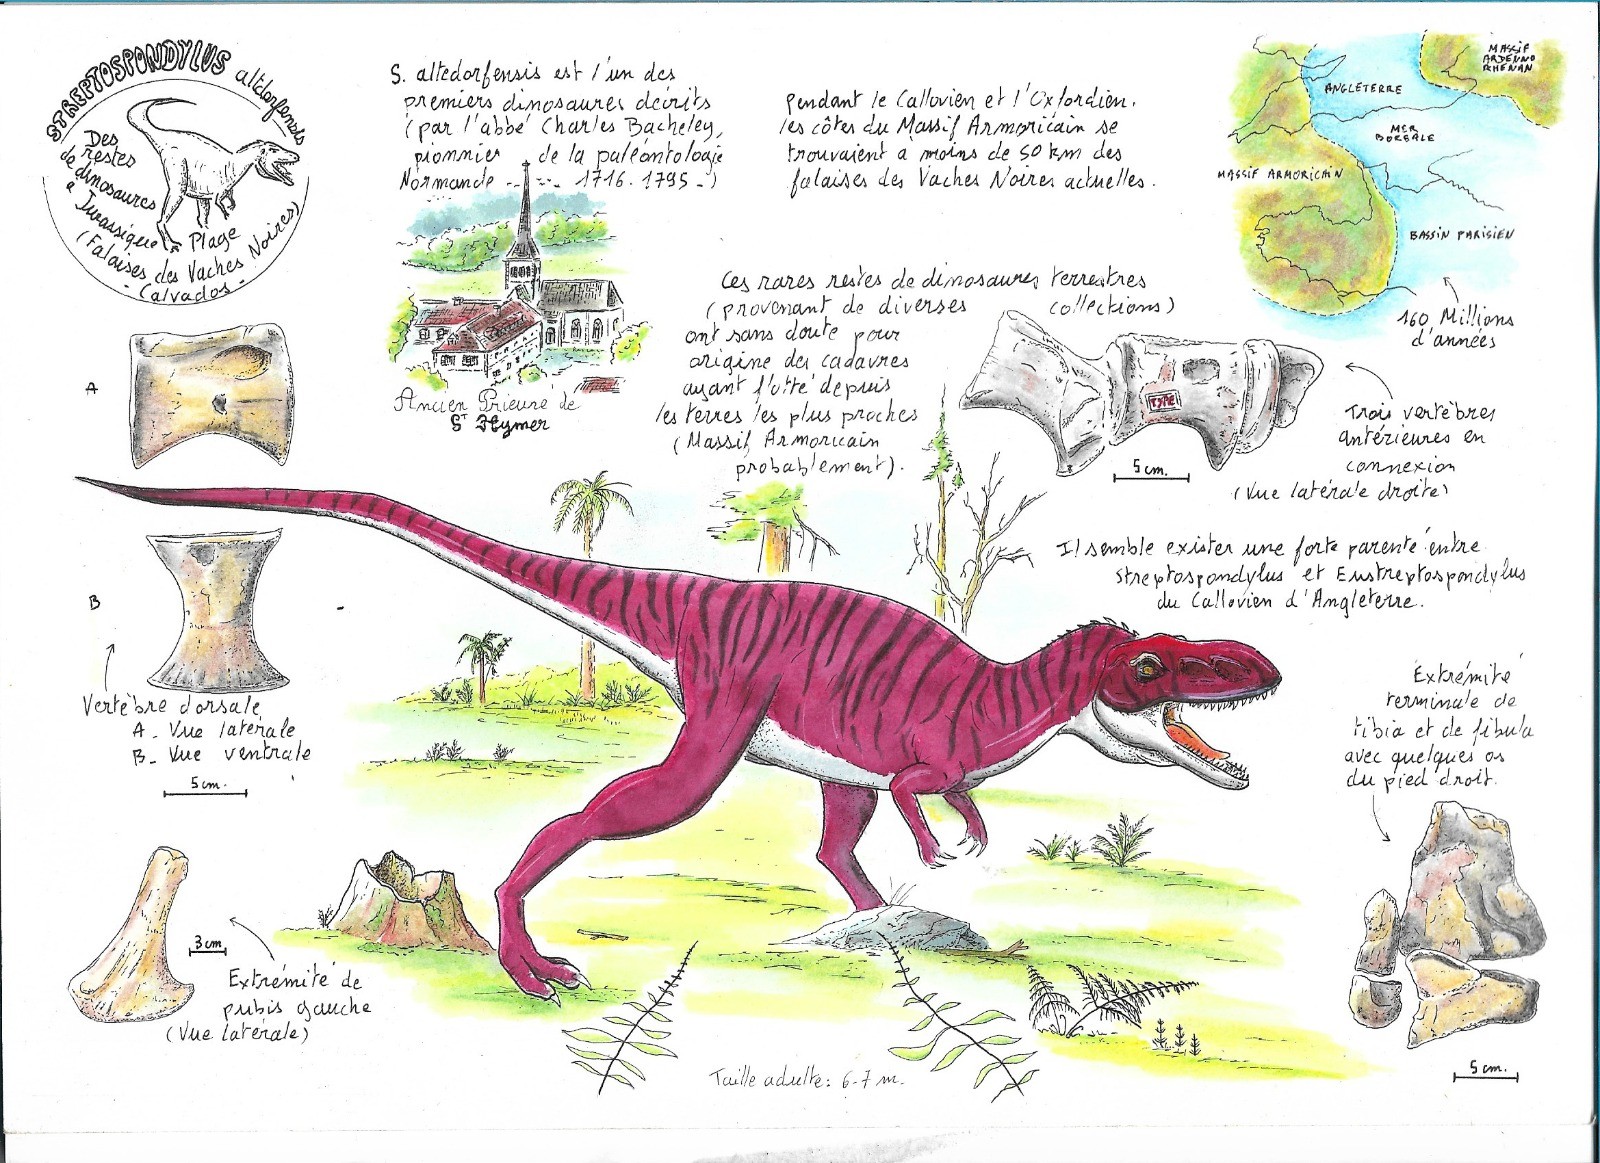 STREPTOSPONDYLUS altdorfensis
Des
restes
de dinosaures
à
Jurassique Plage
(Falaises des Vaches Noires)
- Calvados -
S. altedorfensis est l'un des
premiers dinosaures décrits
(par l'abbé Charles Bacheley,
pionnier de la paléontologie
Normande ... 1716. 1795 .)
Ancien Prieuré de
St Hymer
pendant le Callovien et l'Oxfordien.
les côtes du Massif Armoricain se
trouvaient à moins de 50 km des
falaises des Vaches Noires actuelles.
MASSIF
ARDENNO
RHENAN
ANGLETERRE
MER
BORÉALE
MASSIF ARMORICAIN
BASSIN PARISIEN
160 Millions
d'années
Ces rares restes de dinosaures terrestres
(provenant de diverses collections)
ont sans doute pour
origine des cadavres
ayant flotté depuis
les terres les plus proches
(Massif Armoricain
probablement).
TYPE
5 cm.
Trois vertèbres
antérieures en
connexion
(Vue latérale droite)
Il semble exister une forte parenté entre
Streptospondylus et Eustreptospondylus
du Callovien d'Angleterre.
A
B
Vertèbre dorsale
A. Vue latérale
B. Vue ventrale
5 cm.
3 cm
Extrémité de
pubis gauche
(Vue latérale)
Extrémité
terminale de
tibia et de fibula
avec quelques os
du pied droit.
5 cm.
Taille adulte: 6-7 m.